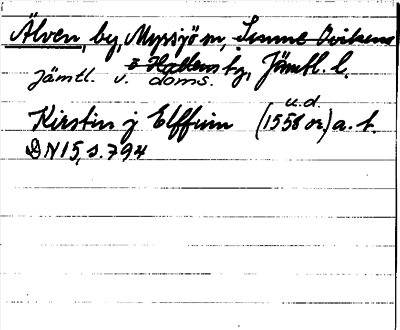 Älven, by, Myssjö sn, Sunne Ovikens
o Hallens tg, Jämtl. l.
Jämtl. v. doms.
u.d.
Kirstin j Elffuin (1558 or.) a. t.
DN 15, s. 794